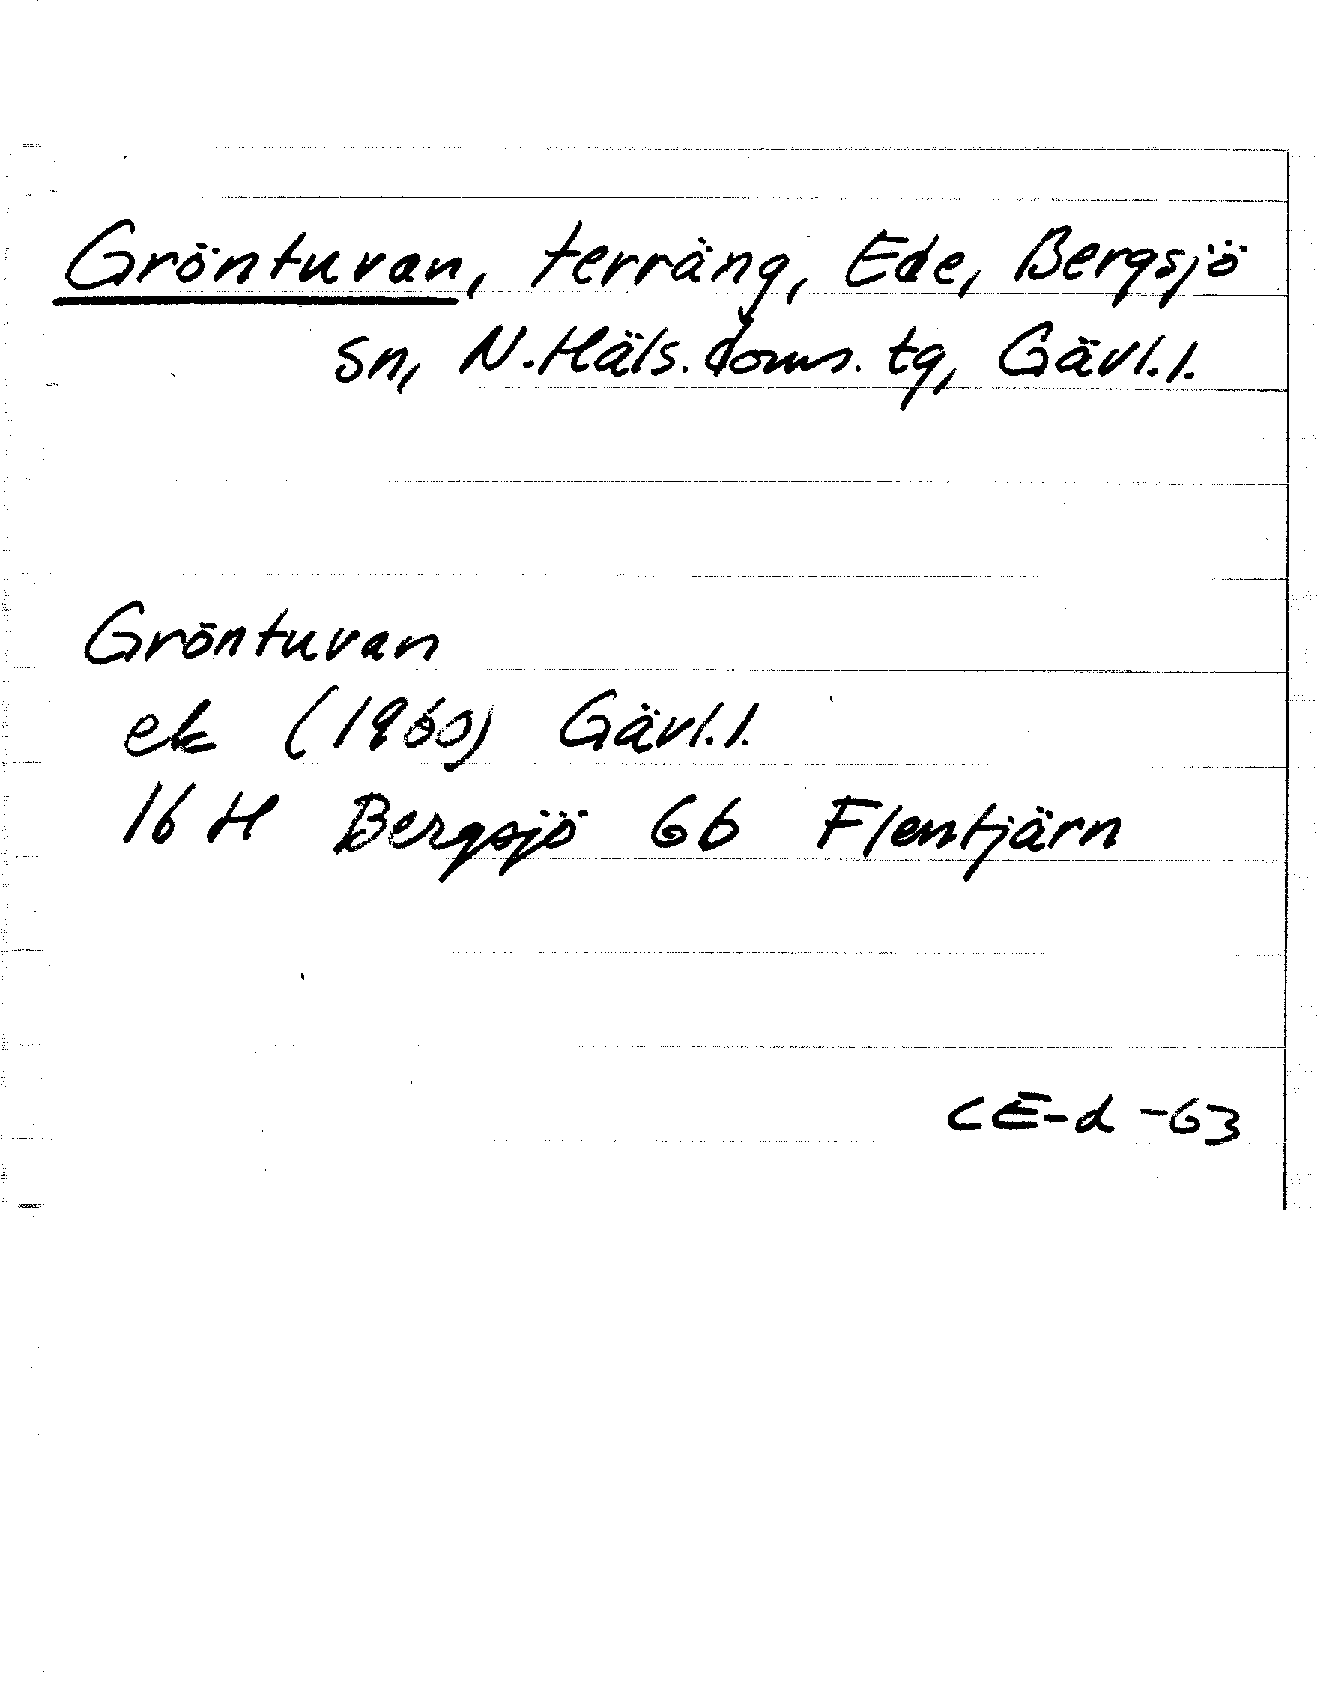 Gröntuvan, terräng, Ede, Bergsjö
sn, N.Häls.doms.tg, Gävl.l.
Gröntuvan
ek (1960) Gävl.l.
16 H Bergsjö 6b Flentjärn
CE-d -63